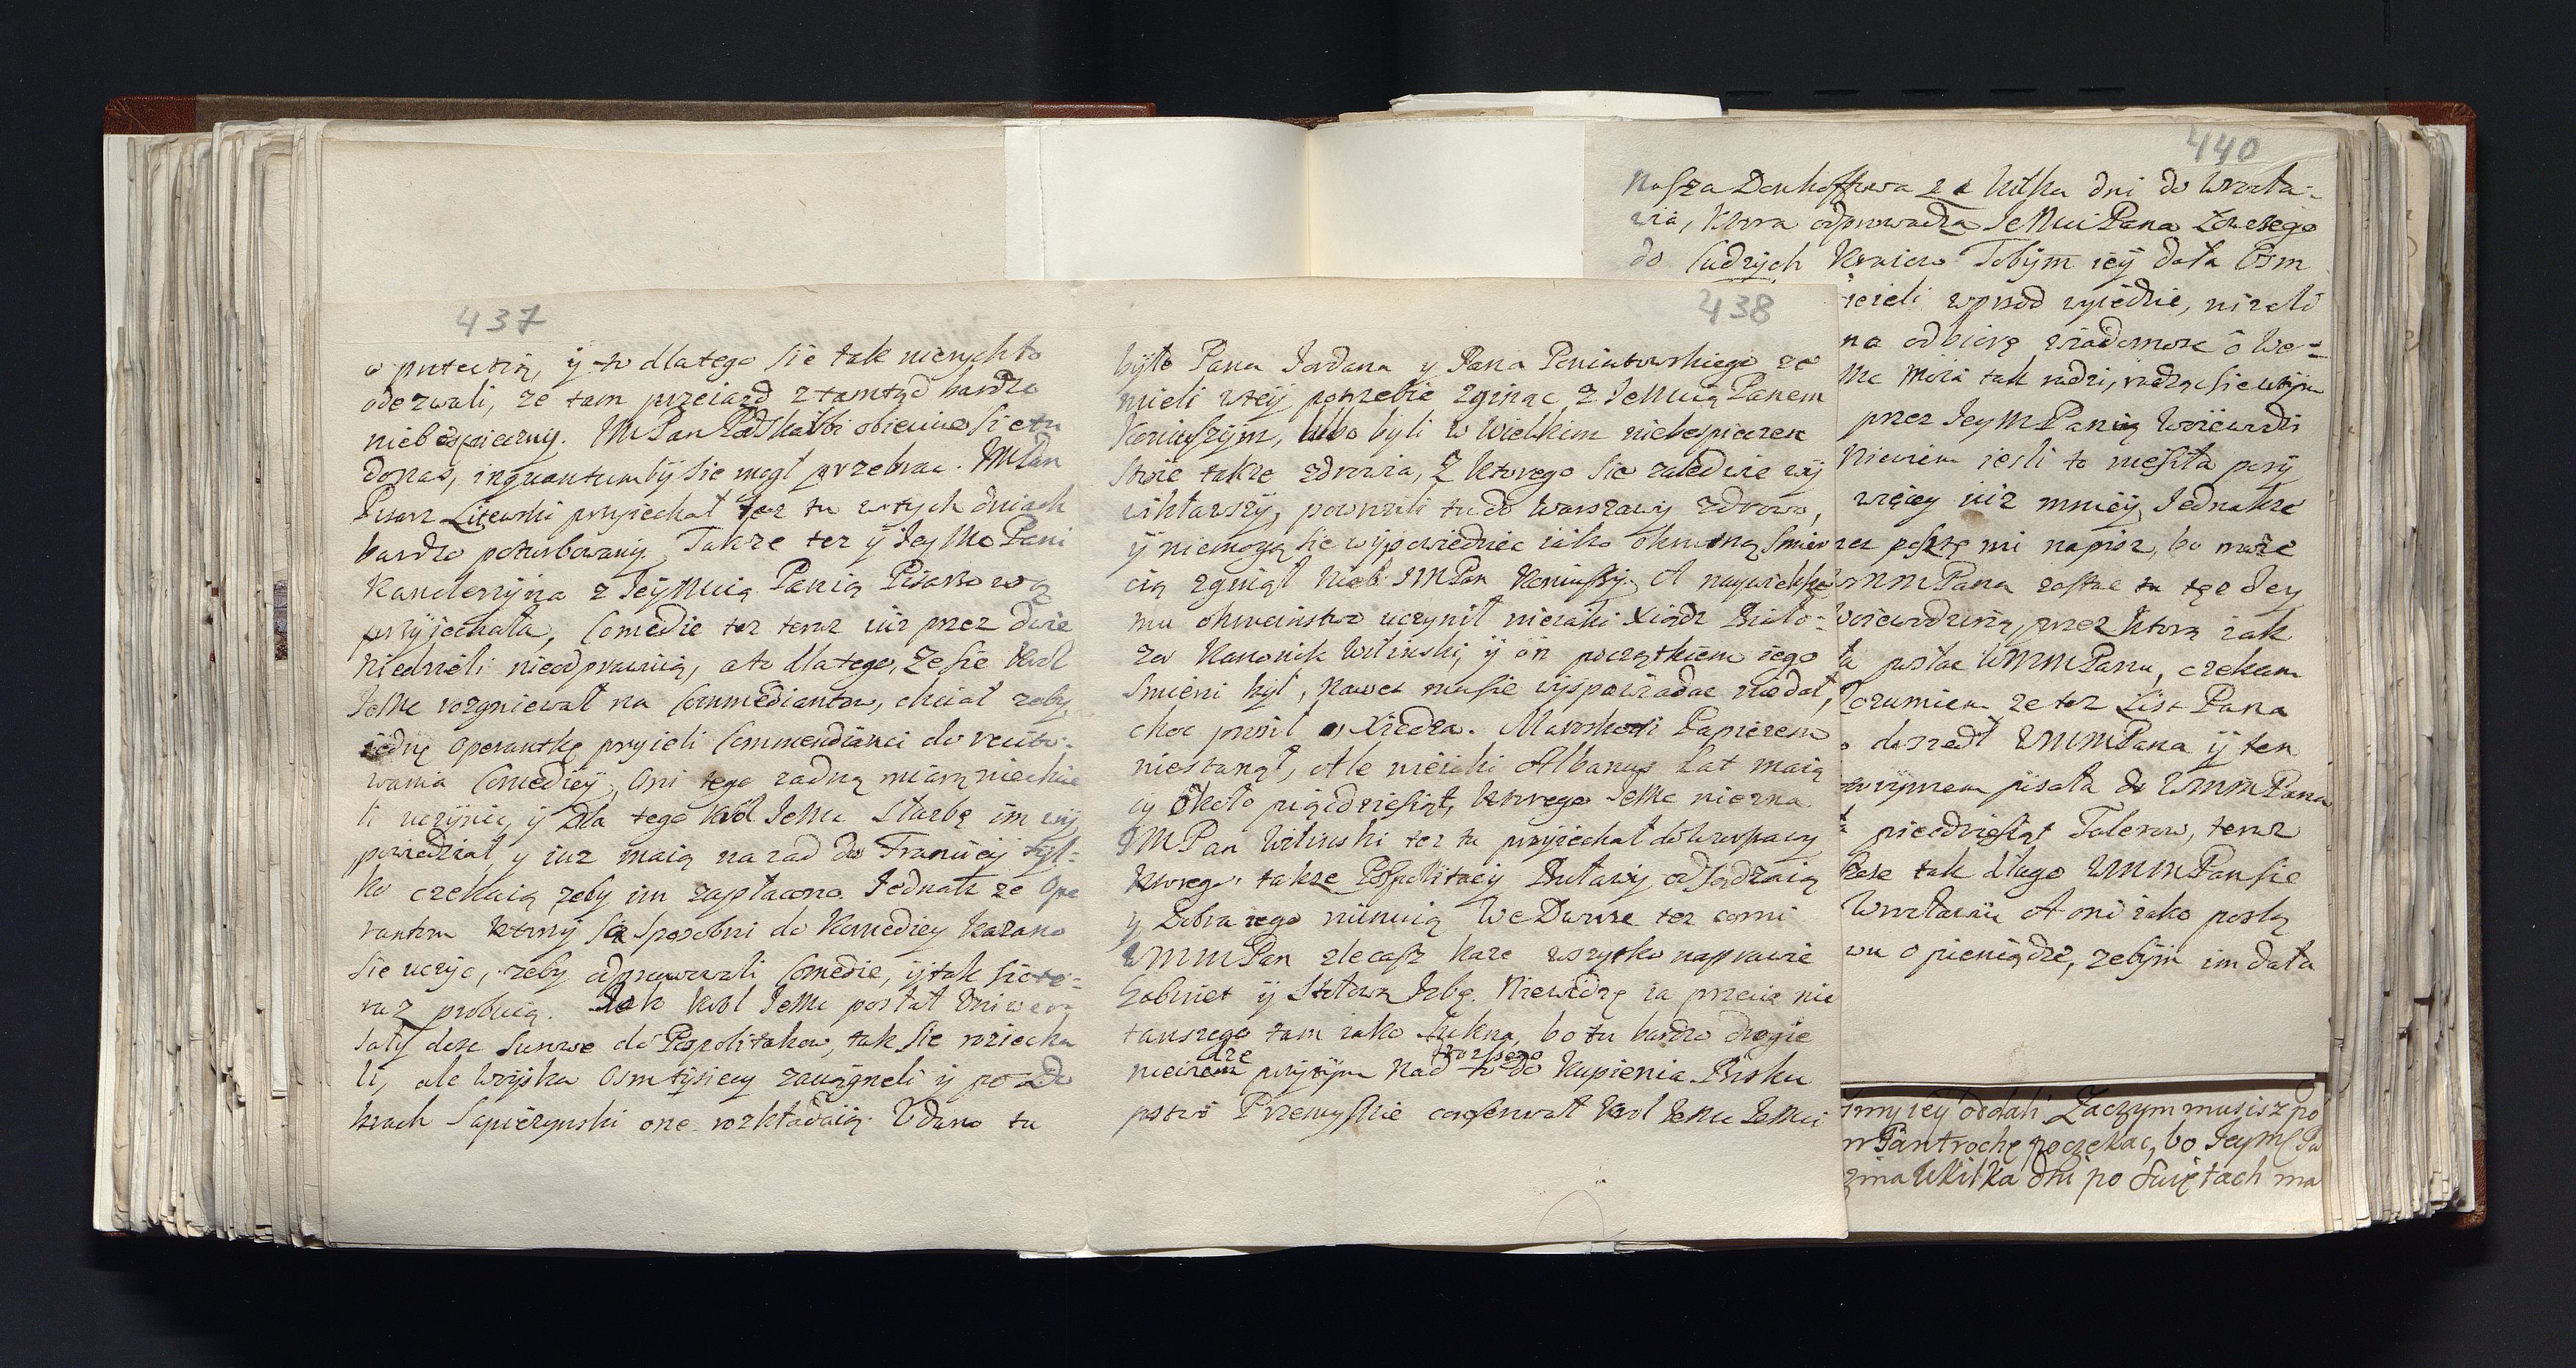 437
w protectią, y to dlatego sie tak nierychło
odezwali, ze tam przeiazd ztamtąd bardzo
niebespieczny. JMPan Podskarbi obiecuie sie tu
donas, inquantumby sie mogl przebrac. JMPan
Pisarz Litewski przyiechał tez tu wtych dniach
bardzo poturbowany, Takze tez ÿ JeyMc Pani
Kanclerzyna z JeyMcią Panią Pisarzową
przyjechała, Comedie tez teraz iuz przez dwie
niedzieli nieodprawuią, a to dlatego, ze sie Krol
JeMc rozgniewał na Commediantow, chciał zeby
iednę Operantkę przyieli Commendianci do recito-
wania Comediey, Oni tego zadną miarą niechcie
li uczynic, ÿ dla tego Krol JeMc służbę im wÿ
powiedział, y iuz maią nazad do Franciey tÿl-
ko czekaią zeby im zapłacono. Jednak ze Ope
rantom ktorzy są sposobni do Komediey kazano
sie uczyc, zeby odprawowali Comedie, ÿ tak sie te-
raz probuią. Jak Krol JeMc posłał Uniwer
sały dosc surowe do Pospolitakow, tak sie roziecha
li, ale woyska osm tÿsiecy zaciągneli ÿ po do
brach Sapiezynski one rozkładaią. Udano tu
438
było Pana Jordana y Pana Poniatowskiego ze
mieli wteÿ potrzebie zginąc z JeMcią Panem
Koniuszÿm, lubo byli w wielkim niebespieczen
stwie takze zdrowia, z ktorego sie zaledwie wÿ
wikławszÿ, powrocili tu do Warszawÿ zdrowo,
ÿ niemogą sie wÿpowiedziec iako okrutną smier
cią zginął Nieb. JMPan Koniuszy. A naywieksze
mu okrucinstwo uczynił nieiaki Xiądz Biało-
zor Kanonik Wilinski, ÿ on początkiem iego
smieri był, nawet mu sie wyspowiadac nie dał,
choc prosił o Xiedza. Marszałkowi Papierem
niestanął, Ale nieiaki Albanus lat maią
cy około pięcdziesiąt, ktorego JeMc niezna
JMPan Wilinski tez tu przyiechał do Warszawy
ktorego takze Pospolitacy Buławy odsądzaią
y Dobra iego niimuią We Dworze tez comi
WMMPan zlecasz kaze wszytko naprawic
Gabinet ÿ Stołową Izbę. Niewidzę ia przecię nic
tanszego tam iako sukna, bo tu bardzo drogie
nicinszego przytym nad to do kupienia. Bisku
pstwo Przemyskie conferował Krol JeMc JeMci
440
Nasza Denhoffowa za kilka dni do Wrocła-
wia, ktora odprowadza JeMci Pana Łowczego
do Cudzych Kraiow Tobÿm ieÿ dała Osm
iezieli wprzod wyiedzie, nizeli
na odbiorę wiadomosc o We-
Mc moia tak radzi, radzęc sie wtym
przez JeyMPanią Woiewodzi
Niewiem iesli to niesiła parÿ
więcey iuz mnieÿ, Jednakze
zez posztę mi napisz, bo moze
WMMPana zostac tu tęe dey
Woiewodziną, przez ktorą iak
ła posłac WMMPanu, czekam
Rozumiem ze tez List Pana
o doszedł WMMPana ÿ ten
ewszÿmem pisała do WMMPana
piecdziesiąt Talerow, teraz
kaze tak długo WMMPan sie
Wrocławiu A oni iako poslą
wu o pieniądze, zebÿm im dała
imy iey oddali Zaczym musisz po
n Pan trochę poczekac, bo JeyMc Pa
zina w kilka dni po swiętach ma